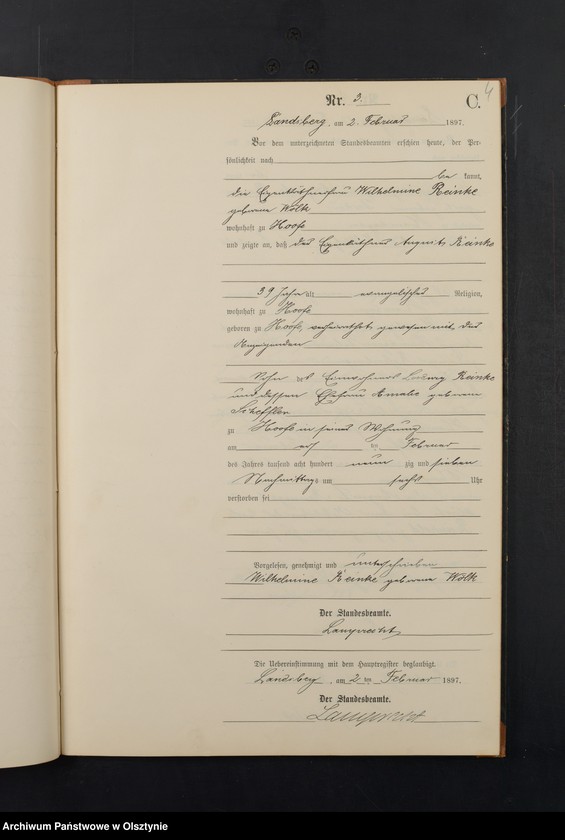 4
Nr. 3. C.
Landsberg, am 2. Februar 1897.
Vor dem unterzeichneten Standesbeamten erschien heute, der Per-
sönlichkeit nach
be kannt,
die Eigenkäthnerfrau Wilhelmine Reinke
geborene Wölk
wohnhaft zu Hoofe
und zeigte an, daß der Eigenkäthner August Reinke
39 Jahre alt evangelischer Religion,
wohnhaft zu Hoofe
geboren zu Hoofe, verheirathet gewesen mit der
Anzeigenden
Sohn des Einwohners Reinke
und dessen Ehefrau Amalie geborene
Scheffler
zu Hoofe in seiner Wohnung
am ten Februar
des Jahres tausend acht hundert neun zig und sieben
Nachmittags um sechs Uhr
verstorben sei
Vorgelesen, genehmigt und unterschrieben
Wilhelmine Reinke geborene Wölk
Der Standesbeamte.
Lamprecht
Die Uebereinstimmung mit dem Hauptregister beglaubigt.
Landsberg, am 2 ten Februar 1897.
Der Standesbeamte.
Lamprecht
Archiwum Państwowe w Olsztynie